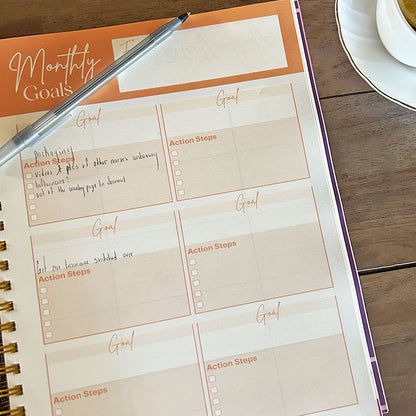 Monthly
Goals
Goal
Goal
packaging
Action Steps
Action Steps
videos & pics of other nurses unboxing
Influencers?
out of the country page to
Goal
Goal
Get our switched over
Action Steps
Action Steps
Goal
Goal
Action Steps
Action Steps